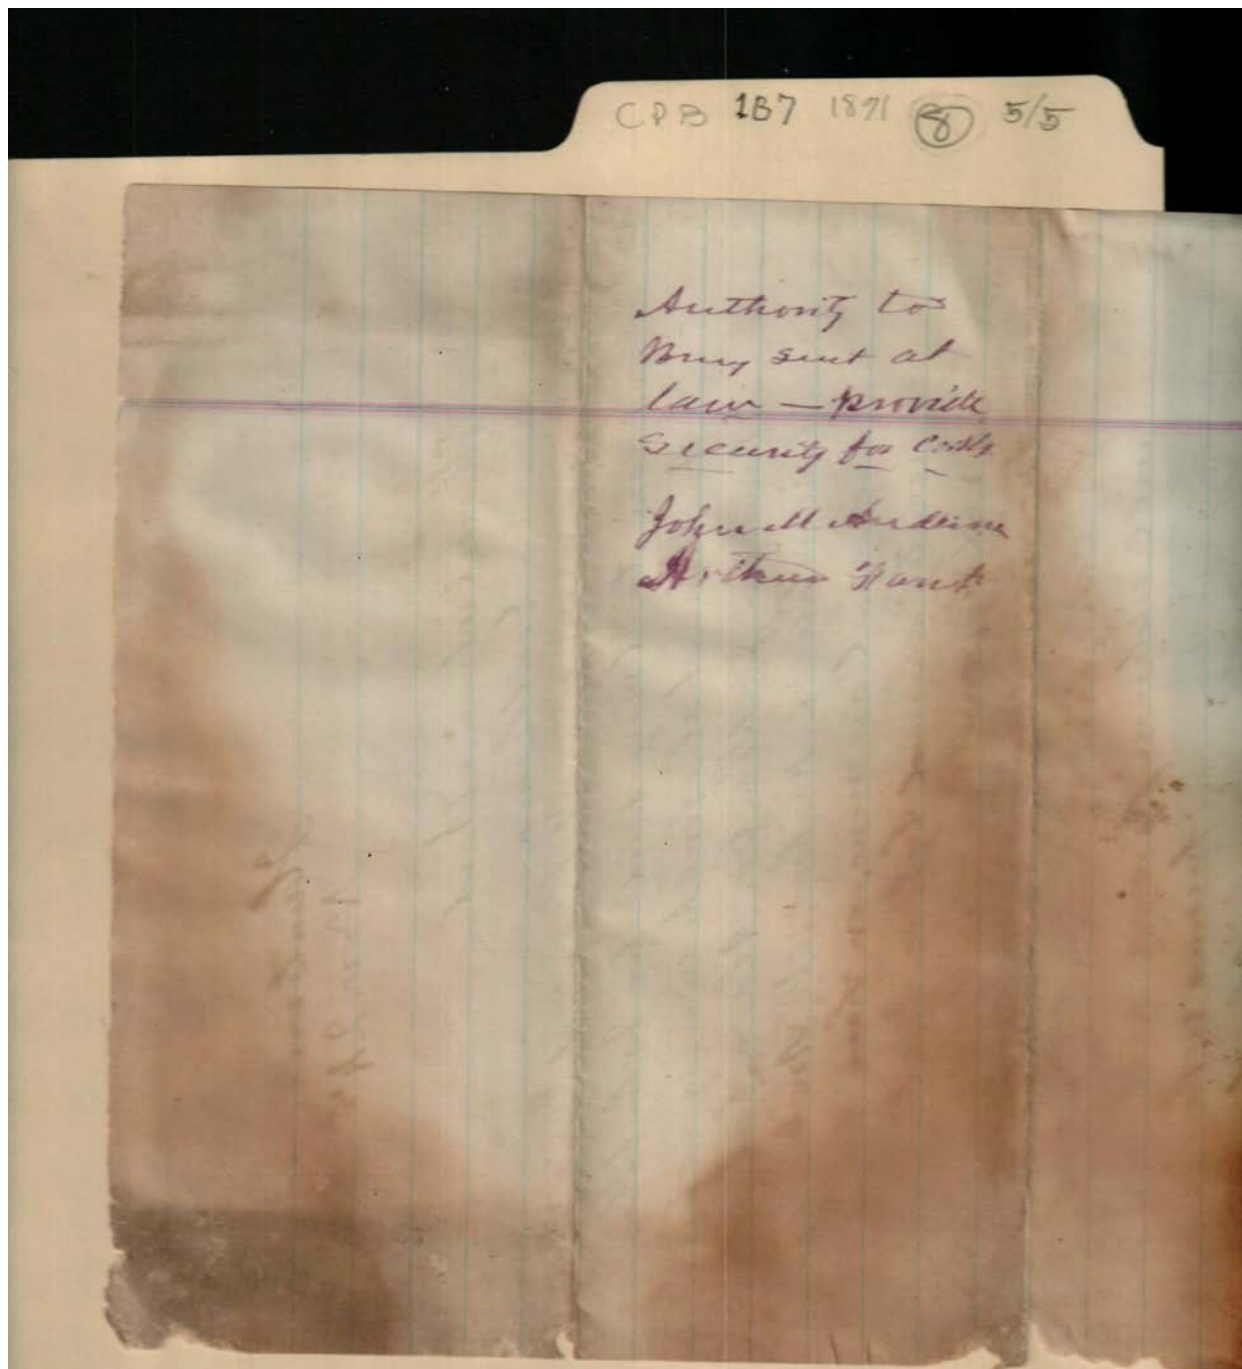 CPB 1B7 1891 8 5/5
Authority to
Bring suit at
law — provide
Security for Costs
John M
Arthur